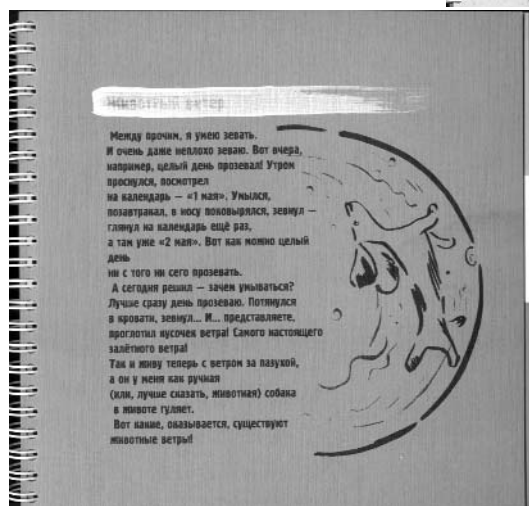 Животный ветер
Между прочим, я умею зевать.
И очень даже неплохо зеваю. Вот вчера,
например, целый день прозевал! Утром
проснулся, посмотрел
на календарь — «1 мая». Умылся,
позавтракал, в носу поковырялся, зевнул —
глянул на календарь ещё раз,
а там уже «2 мая». Вот как можно целый
день
ни с того ни сего прозевать.
А сегодня решил — зачем умываться?
Лучше сразу день прозеваю. Потянулся
в кровати, зевнул... И... представляете,
проглотил кусочек ветра! Самого настоящего
залётного ветра!
Так и живу теперь с ветром за пазухой,
а он у меня как ручная
(или, лучше сказать, животная) собака
в животе гуляет.
Вот какие, оказывается, существуют
животные ветры!